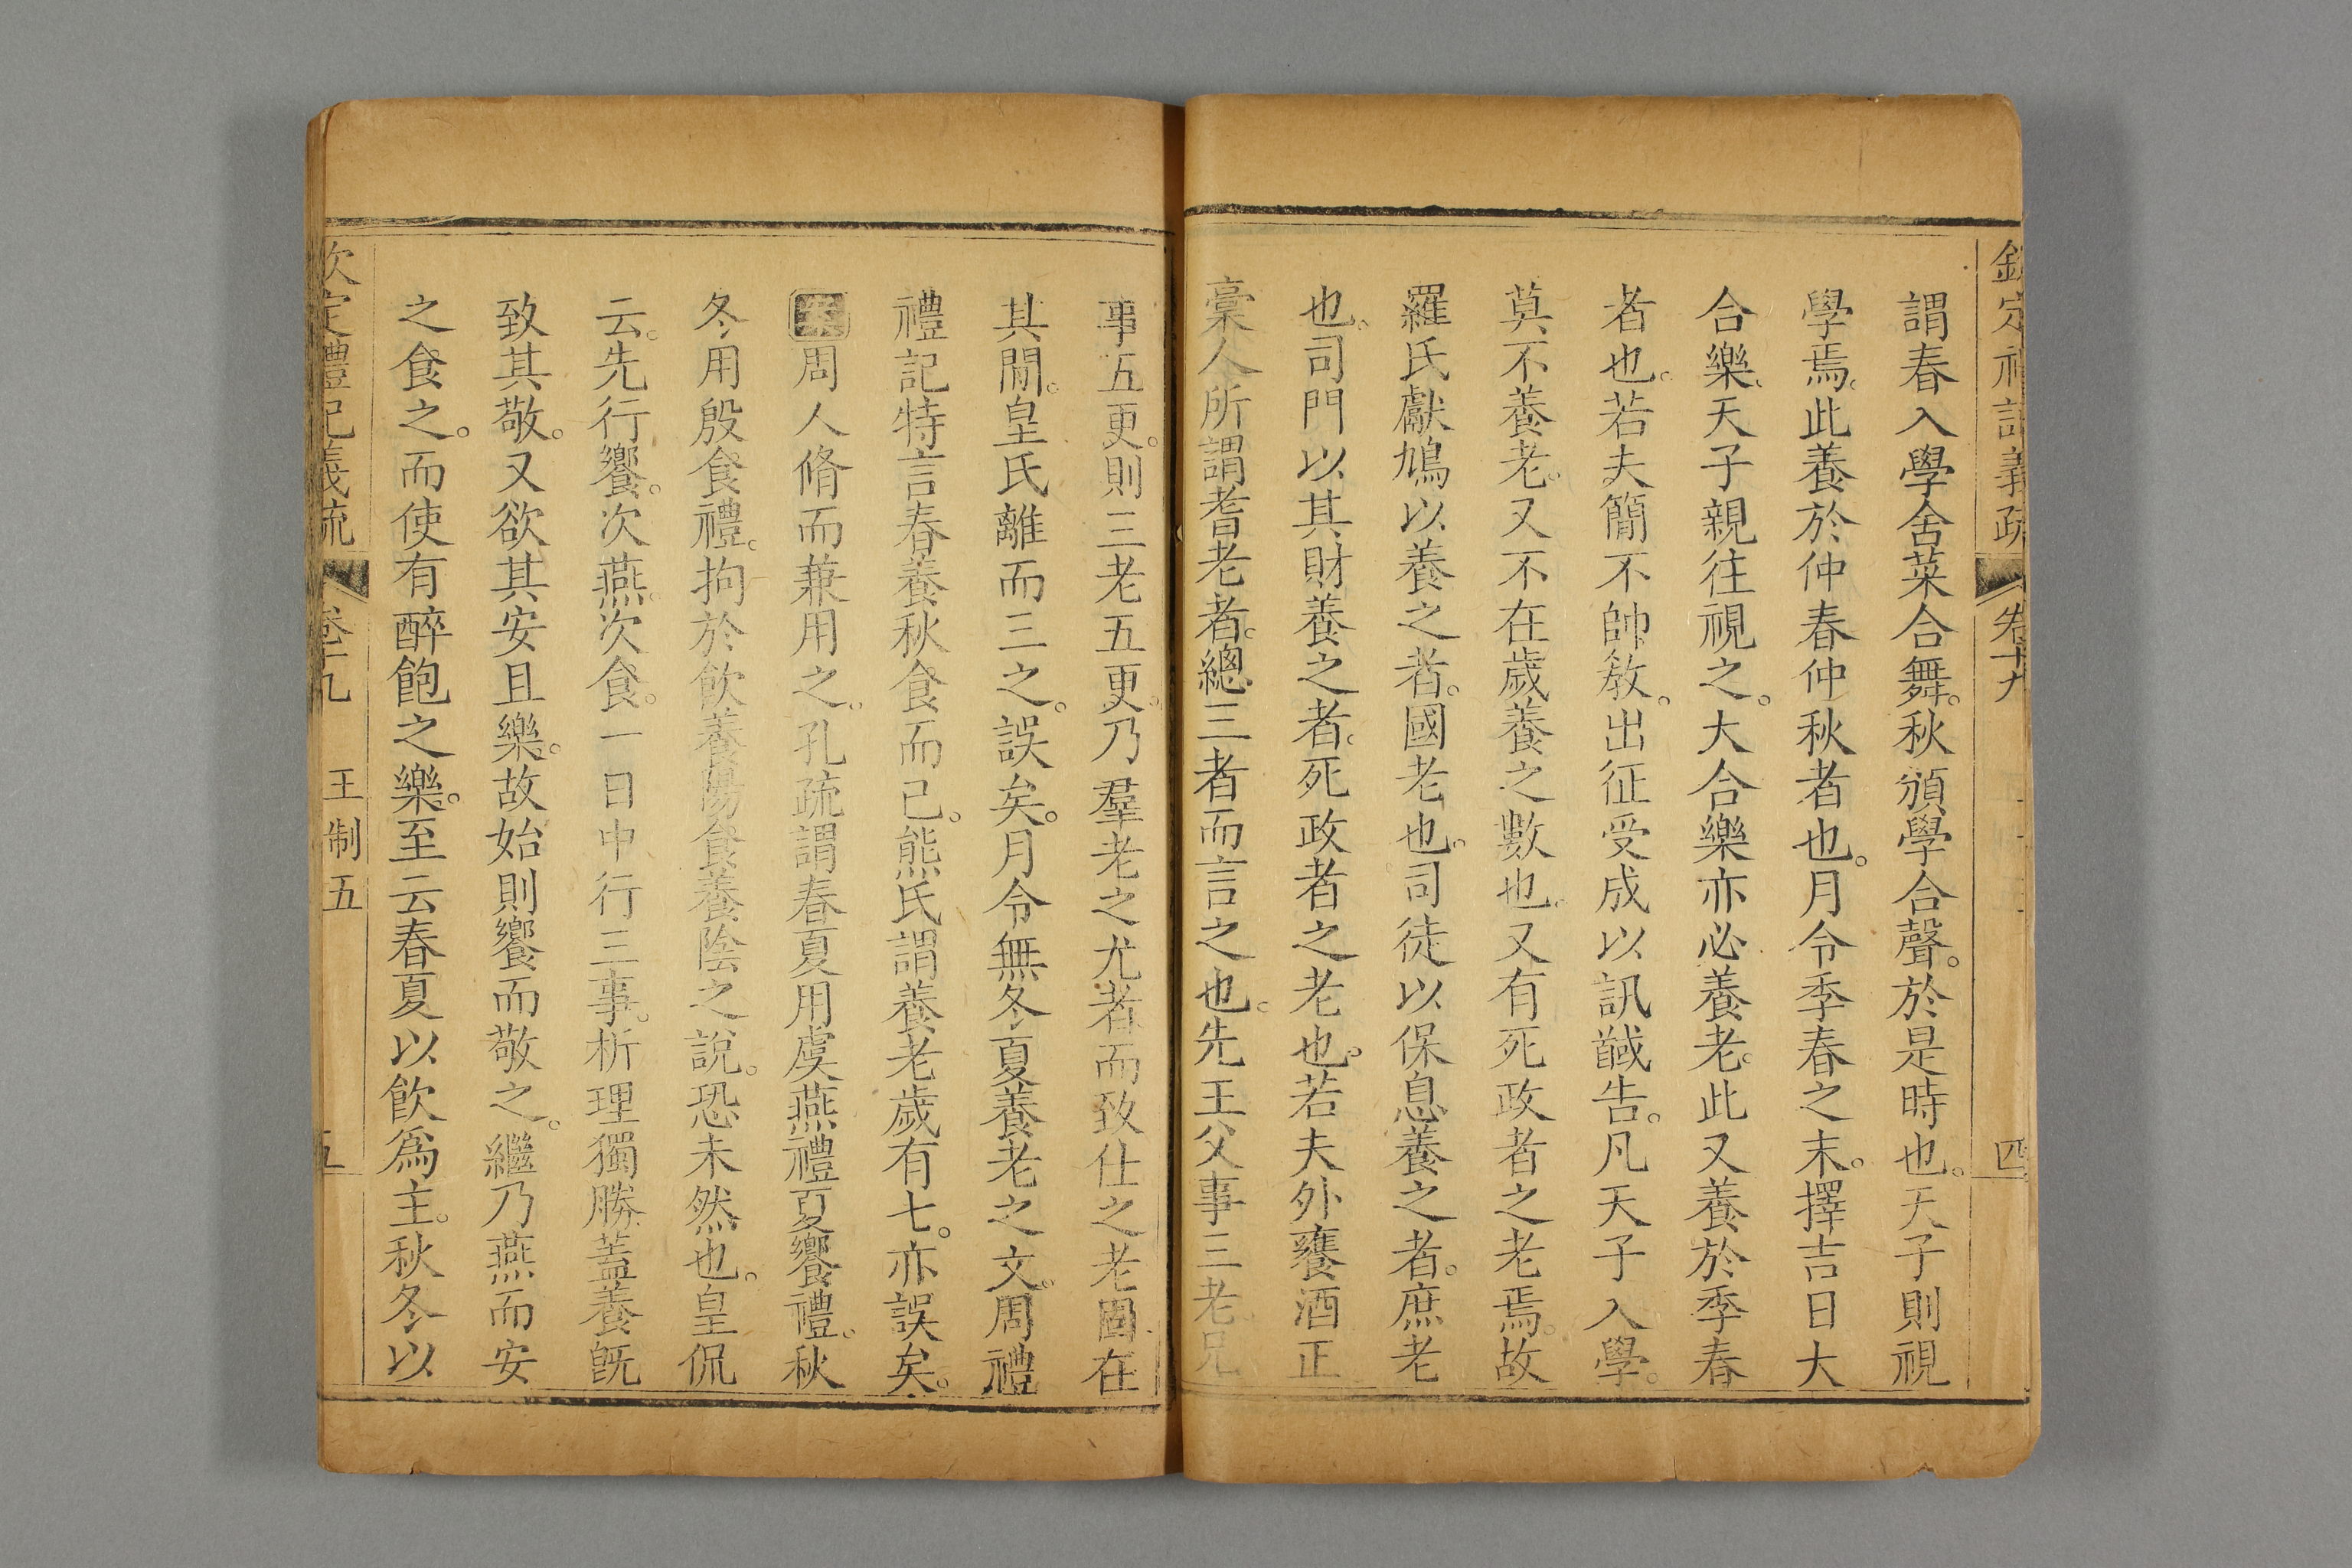 欽定禮記義疏 卷十九 四
謂春入學舍菜合舞。秋頒學合聲。於是時也。天子則視
學焉。此養於仲春仲秋者也。月令季春之末。擇吉日大
合樂。天子親往視之。大合樂亦必養老。此又養於季春
者也。若夫簡不帥教。出征受成以訊馘告。凡天子入學。
莫不養老。又不在歲養之數也。又有死政者之老焉。故
羅氏獻鳩以養之者。國老也。司徒以保息養之者。庶老
也。司門以其財養之者。死政者之老也。若夫外饔酒正
稾人所謂耆老者。總三者而言之也。先王父事三老。兄
事五更。則三老五更。乃羣老之尤者。而致仕之老固在
其閒。皇氏離而三之。誤矣。月令無冬夏養老之文。周禮
禮記特言春養秋食而已。熊氏謂養老歲有七。亦誤矣。
案周人脩而兼用之。孔疏謂春夏用虞燕禮夏饗禮。秋
冬用殷食禮。拘於飲養陽食養陰之說。恐未然也。皇侃
云。先行饗。次燕。次食。一日中行三事。析理獨勝蓋養旣
致其敬。又欲其安且樂。故始則饗而敬之。繼乃燕而安
之食之。而使有醉飽之樂。至云春夏以飲爲主。秋冬以
欽定禮記義疏 卷十九 王制五 五